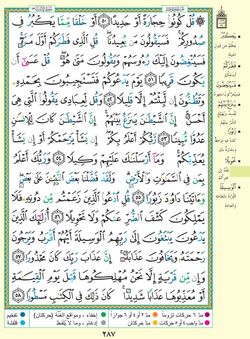 ۞ قُلْ كُونُوا۟ حِجَارَةً أَوْ حَدِيدًا ٥٠ أَوْ خَلْقًا مِّمَّا يَكْبُرُ فِى
صُدُورِكُمْ ۚ فَسَيَقُولُونَ مَن يُعِيدُنَا ۖ قُلِ ٱلَّذِى فَطَرَكُمْ أَوَّلَ مَرَّةٍ ۚ
فَسَيُنْغِضُونَ إِلَيْكَ رُءُوسَهُمْ وَيَقُولُونَ مَتَىٰ هُوَ ۖ قُلْ عَسَىٰٓ أَن
يَكُونَ قَرِيبًا ٥١ يَوْمَ يَدْعُوكُمْ فَتَسْتَجِيبُونَ بِحَمْدِهِۦ
وَتَظُنُّونَ إِن لَّبِثْتُمْ إِلَّا قَلِيلًا ٥٢ وَقُل لِّعِبَادِى يَقُولُوا۟ ٱلَّتِى هِىَ
أَحْسَنُ ۚ إِنَّ ٱلشَّيْطَٰنَ يَنزَغُ بَيْنَهُمْ ۚ إِنَّ ٱلشَّيْطَٰنَ كَانَ لِلْإِنسَٰنِ
عَدُوًّا مُّبِينًا ٥٣ رَّبُّكُمْ أَعْلَمُ بِكُمْ ۖ إِن يَشَأْ يَرْحَمْكُمْ أَوْ إِن يَشَأْ
يُعَذِّبْكُمْ ۚ وَمَآ أَرْسَلْنَٰكَ عَلَيْهِمْ وَكِيلًا ٥٤ وَرَبُّكَ أَعْلَمُ
بِمَن فِى ٱلسَّمَٰوَٰتِ وَٱلْأَرْضِ ۗ وَلَقَدْ فَضَّلْنَا بَعْضَ ٱلنَّبِيِّۦنَ عَلَىٰ بَعْضٍ ۖ
وَءَاتَيْنَا دَاوُۥدَ زَبُورًا ٥٥ قُلِ ٱدْعُوا۟ ٱلَّذِينَ زَعَمْتُم مِّن دُونِهِۦ فَلَا
يَمْلِكُونَ كَشْفَ ٱلضُّرِّ عَنكُمْ وَلَا تَحْوِيلًا ٥٦ أُو۟لَٰٓئِكَ ٱلَّذِينَ
يَدْعُونَ يَبْتَغُونَ إِلَىٰ رَبِّهِمُ ٱلْوَسِيلَةَ أَيُّهُمْ أَقْرَبُ وَيَرْجُونَ
رَحْمَتَهُۥ وَيَخَافُونَ عَذَابَهُۥٓ ۚ إِنَّ عَذَابَ رَبِّكَ كَانَ مَحْذُورًا ٥٧
وَإِن مِّن قَرْيَةٍ إِلَّا نَحْنُ مُهْلِكُوهَا قَبْلَ يَوْمِ ٱلْقِيَٰمَةِ
أَوْ مُعَذِّبُوهَا عَذَابًا شَدِيدًا ۚ كَانَ ذَٰلِكَ فِى ٱلْكِتَٰبِ مَسْطُورًا ٥٨
٢٨٧